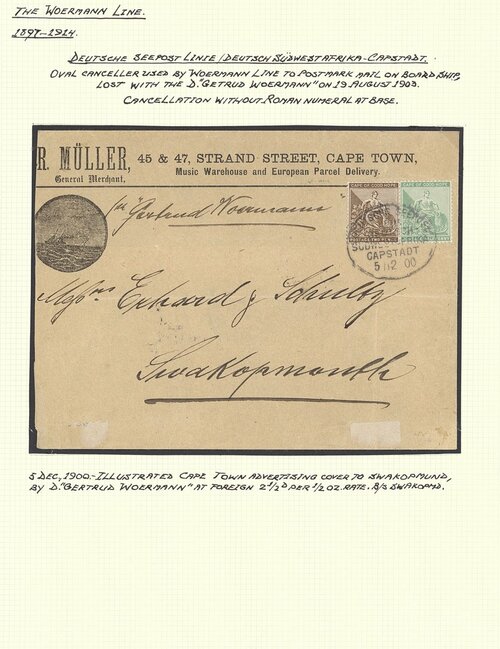 THE WOERMANN LINE.
1897-1914.
DEUTSCHE SEEPOST LINIE/DEUTSCH SÜDWESTAFRIKA-CAPSTADT.
OVAL CANCELLER USED BY WOERMANN LINE TO POSTMARK MAIL ON BOARD SHIP,
LOST WITH THE D."GETRUD WOERMANN" ON 19 AUGUST 1903.
CANCELLATION WITHOUT ROMAN NUMERAL AT BASE.
R. MÜLLER, 45 & 47, STRAND STREET, CAPE TOWN,
General Merchant. Music Warehouse and European Parcel Delivery.
per Gertrud Woermann
CAPE OF GOOD HOPE CAPE OF GOOD HOPE
POSTAGE TWO PENCE
CAPSTADT
5 12 00
Messrs Erhard & Schultz
Swakopmouth
5 DEC, 1900.-ILLUSTRATED CAPE TOWN ADVERTISING COVER TO SWAKOPMUND,
BY D."GERTRUD WOERMANN" AT FOREIGN 2½D PER ½ OZ. RATE. B/S SWAKOPMD.